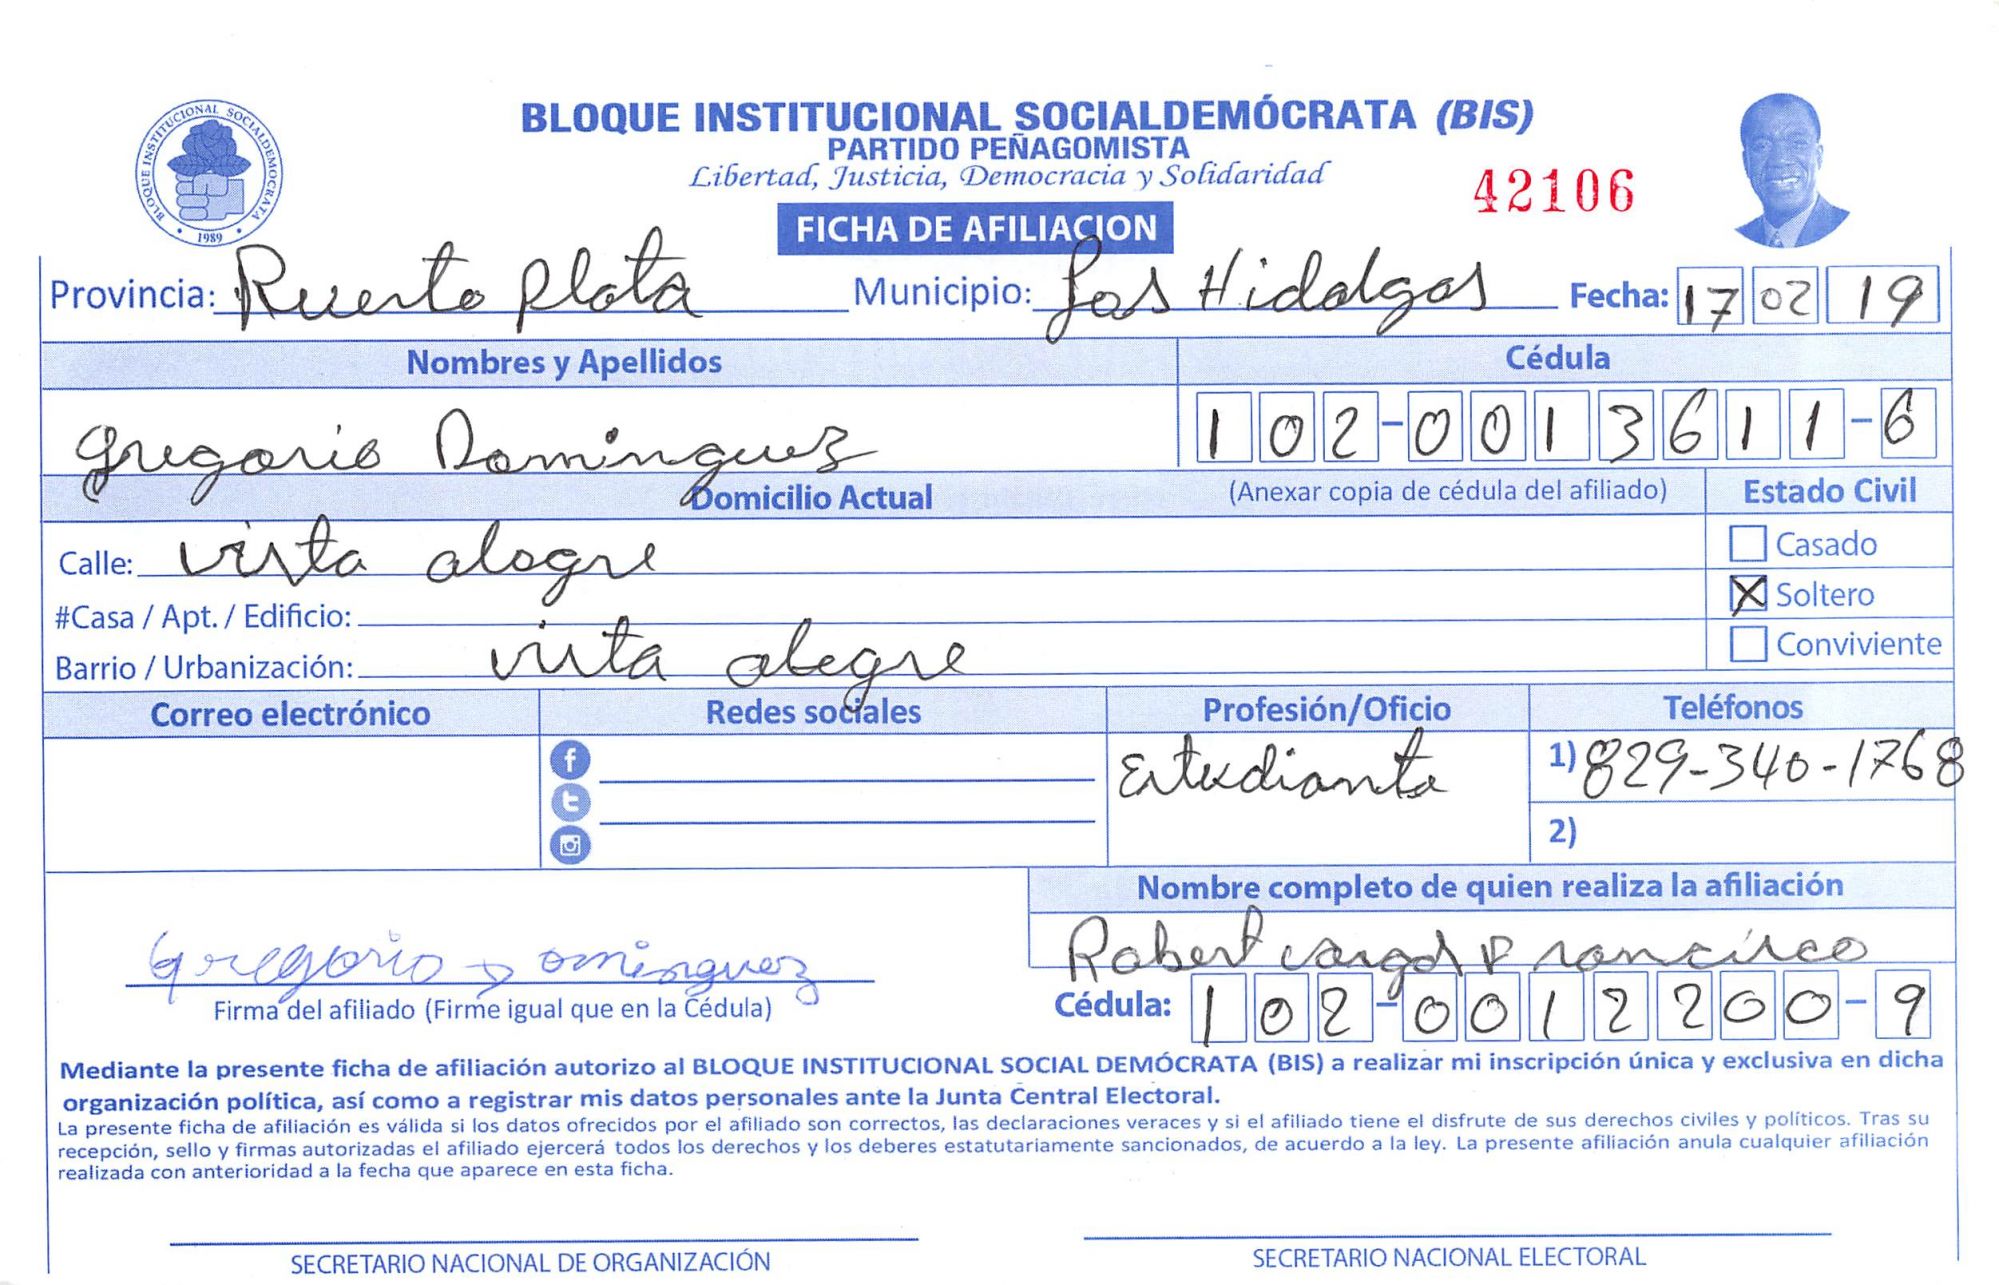 BLOQUE INSTITUCIONAL SOCIALDEMÓCRATA (BIS)
PARTIDO PEÑAGOMISTA
Libertad, Justicia, Democracia y Solidaridad
42106
BLOQUE INSTITUCIONAL SOCIALDEMOCRATA
1989
FICHA DE AFILIACION
Provincia: Puerto Plata Municipio: Los Hidalgos Fecha: 17 02 19
Nombres y Apellidos Cédula
Gregorio Dominguez 102-0013611-6
Domicilio Actual (Anexar copia de cédula del afiliado) Estado Civil
Calle: vista alegre Casado
#Casa / Apt. / Edificio: X Soltero
Barrio / Urbanización: vista alegre Conviviente
Correo electrónico Redes sociales Profesión/Oficio Teléfonos
Estudiante 1) 829-340-1768
2)
Nombre completo de quien realiza la afiliación
Gregorio Dominguez Robert Francisco
Firma del afiliado (Firme igual que en la Cédula) Cédula: 102-0012200-9
Mediante la presente ficha de afiliación autorizo al BLOQUE INSTITUCIONAL SOCIAL DEMÓCRATA (BIS) a realizar mi inscripción única y exclusiva en dicha
organización política, así como a registrar mis datos personales ante la Junta Central Electoral.
La presente ficha de afiliación es válida si los datos ofrecidos por el afiliado son correctos, las declaraciones veraces y si el afiliado tiene el disfrute de sus derechos civiles y políticos. Tras su
recepción, sello y firmas autorizadas el afiliado ejercerá todos los derechos y los deberes estatutariamente sancionados, de acuerdo a la ley. La presente afiliación anula cualquier afiliación
realizada con anterioridad a la fecha que aparece en esta ficha.
SECRETARIO NACIONAL DE ORGANIZACIÓN SECRETARIO NACIONAL ELECTORAL